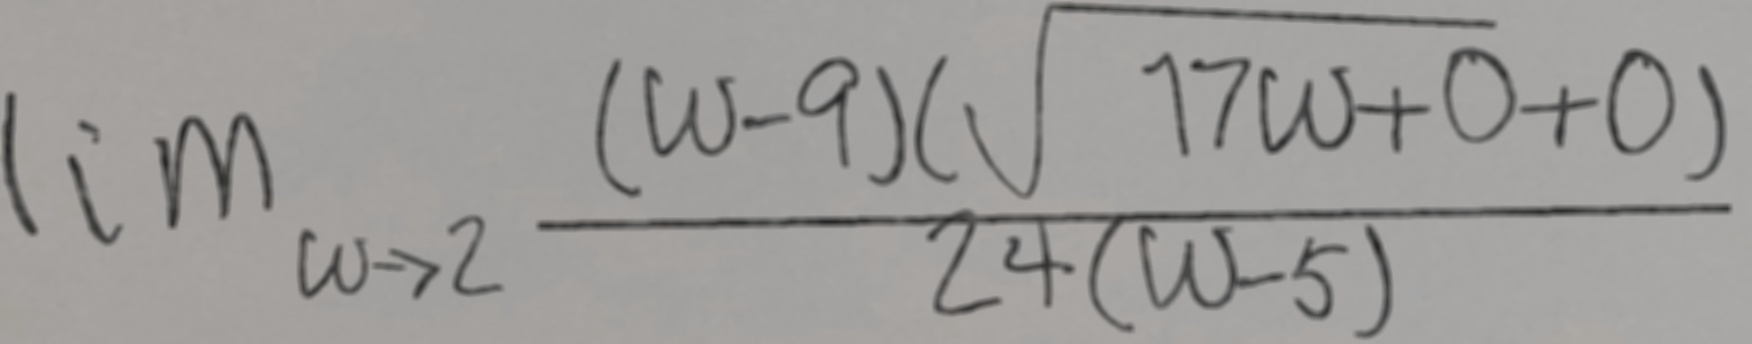 \lim_{w \to 2} \frac{(w-9)(\sqrt{17w+0}+0)}{24(w-5)}